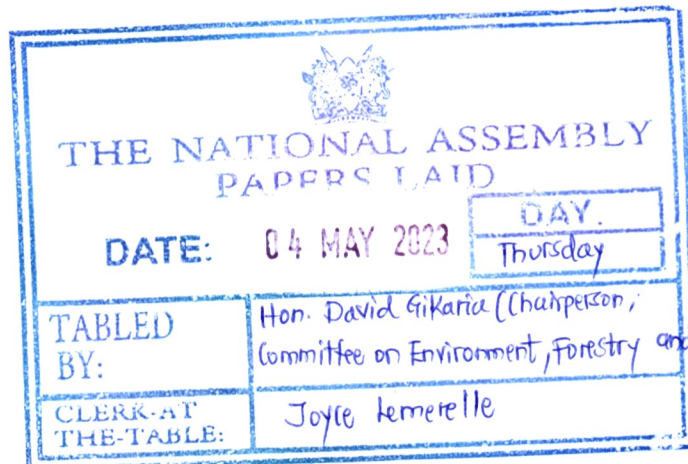 THE NATIONAL ASSEMBLY
PAPERS LAID
DATE: 04 MAY 2023
DAY.
Thursday
TABLED BY:
Hon. David Gikaria (Chairperson,
Committee on Environment, Forestry and
CLERK-AT THE-TABLE:
Joyce Lemerelle